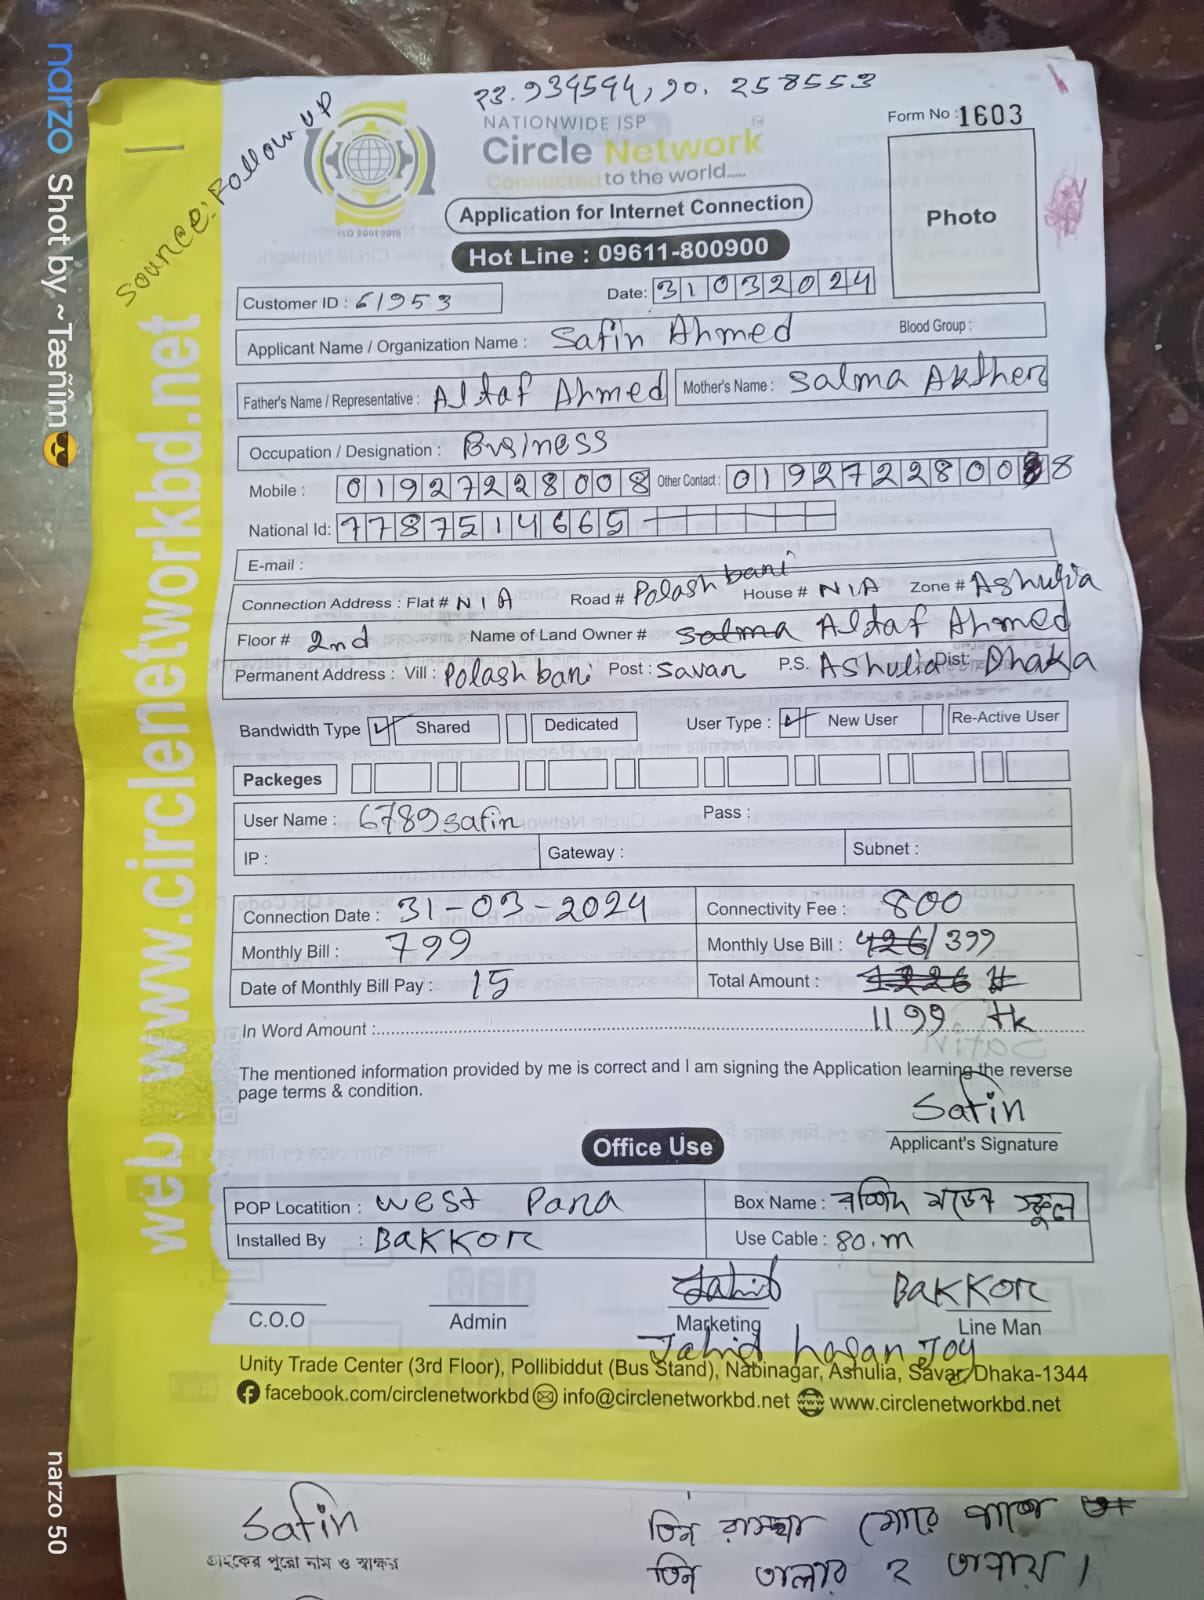 23.934594, 90.258553
Source: Follow UP
NATIONWIDE ISP
Circle Network
Connected to the world.....
Form No : 1603
ISO 9001:2015
Application for Internet Connection
Photo
Hot Line : 09611-800900
Customer ID : 61953
Date: 31032024
Applicant Name / Organization Name : Safin Ahmed Blood Group :
Father's Name / Representative : Altaf Ahmed Mother's Name : Salma Akther
Occupation / Designation : Business
Mobile : 01927228008 Other Contact : 01927228008
National Id: 7787514665
E-mail :
Connection Address : Flat # N/A Road # Polashbari House # N/A Zone # Ashulia
Floor # 2nd Name of Land Owner # Salma Altaf Ahmed
Permanent Address : Vill : Polashbari Post : Savar P.S. Ashulia Dist: Dhaka
Bandwidth Type Shared Dedicated User Type : New User Re-Active User
Packeges
User Name : 6789safin Pass :
IP : Gateway : Subnet :
Connection Date : 31-03-2024 Connectivity Fee : 800
Monthly Bill : 799 Monthly Use Bill : 426/399
Date of Monthly Bill Pay : 15 Total Amount : 1226 tk
In Word Amount : 1199 tk
The mentioned information provided by me is correct and I am signing the Application learning the reverse
page terms & condition.
Safin
Applicant's Signature
Office Use
POP Locatition : West Para Box Name : রশিদ মডেল স্কুল
Installed By : BAKKOR Use Cable : 80.m
Jahid BAKKOR
C.O.O Admin Marketing Line Man
Jahid hasan Joy
Unity Trade Center (3rd Floor), Pollibiddut (Bus Stand), Nabinagar, Ashulia, Savar, Dhaka-1344
facebook.com/circlenetworkbd info@circlenetworkbd.net www.circlenetworkbd.net
web : www.circlenetworkbd.net
Safin
গ্রাহকের পুরো নাম ও স্বাক্ষর
তিন রাস্তার মোরে পাশে
তিন তালার ২ তালায়।
narzo Shot by ~Tæñîm😎
narzo 50